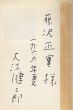 藤沢正實様
一九八九年夏
大江健三郎